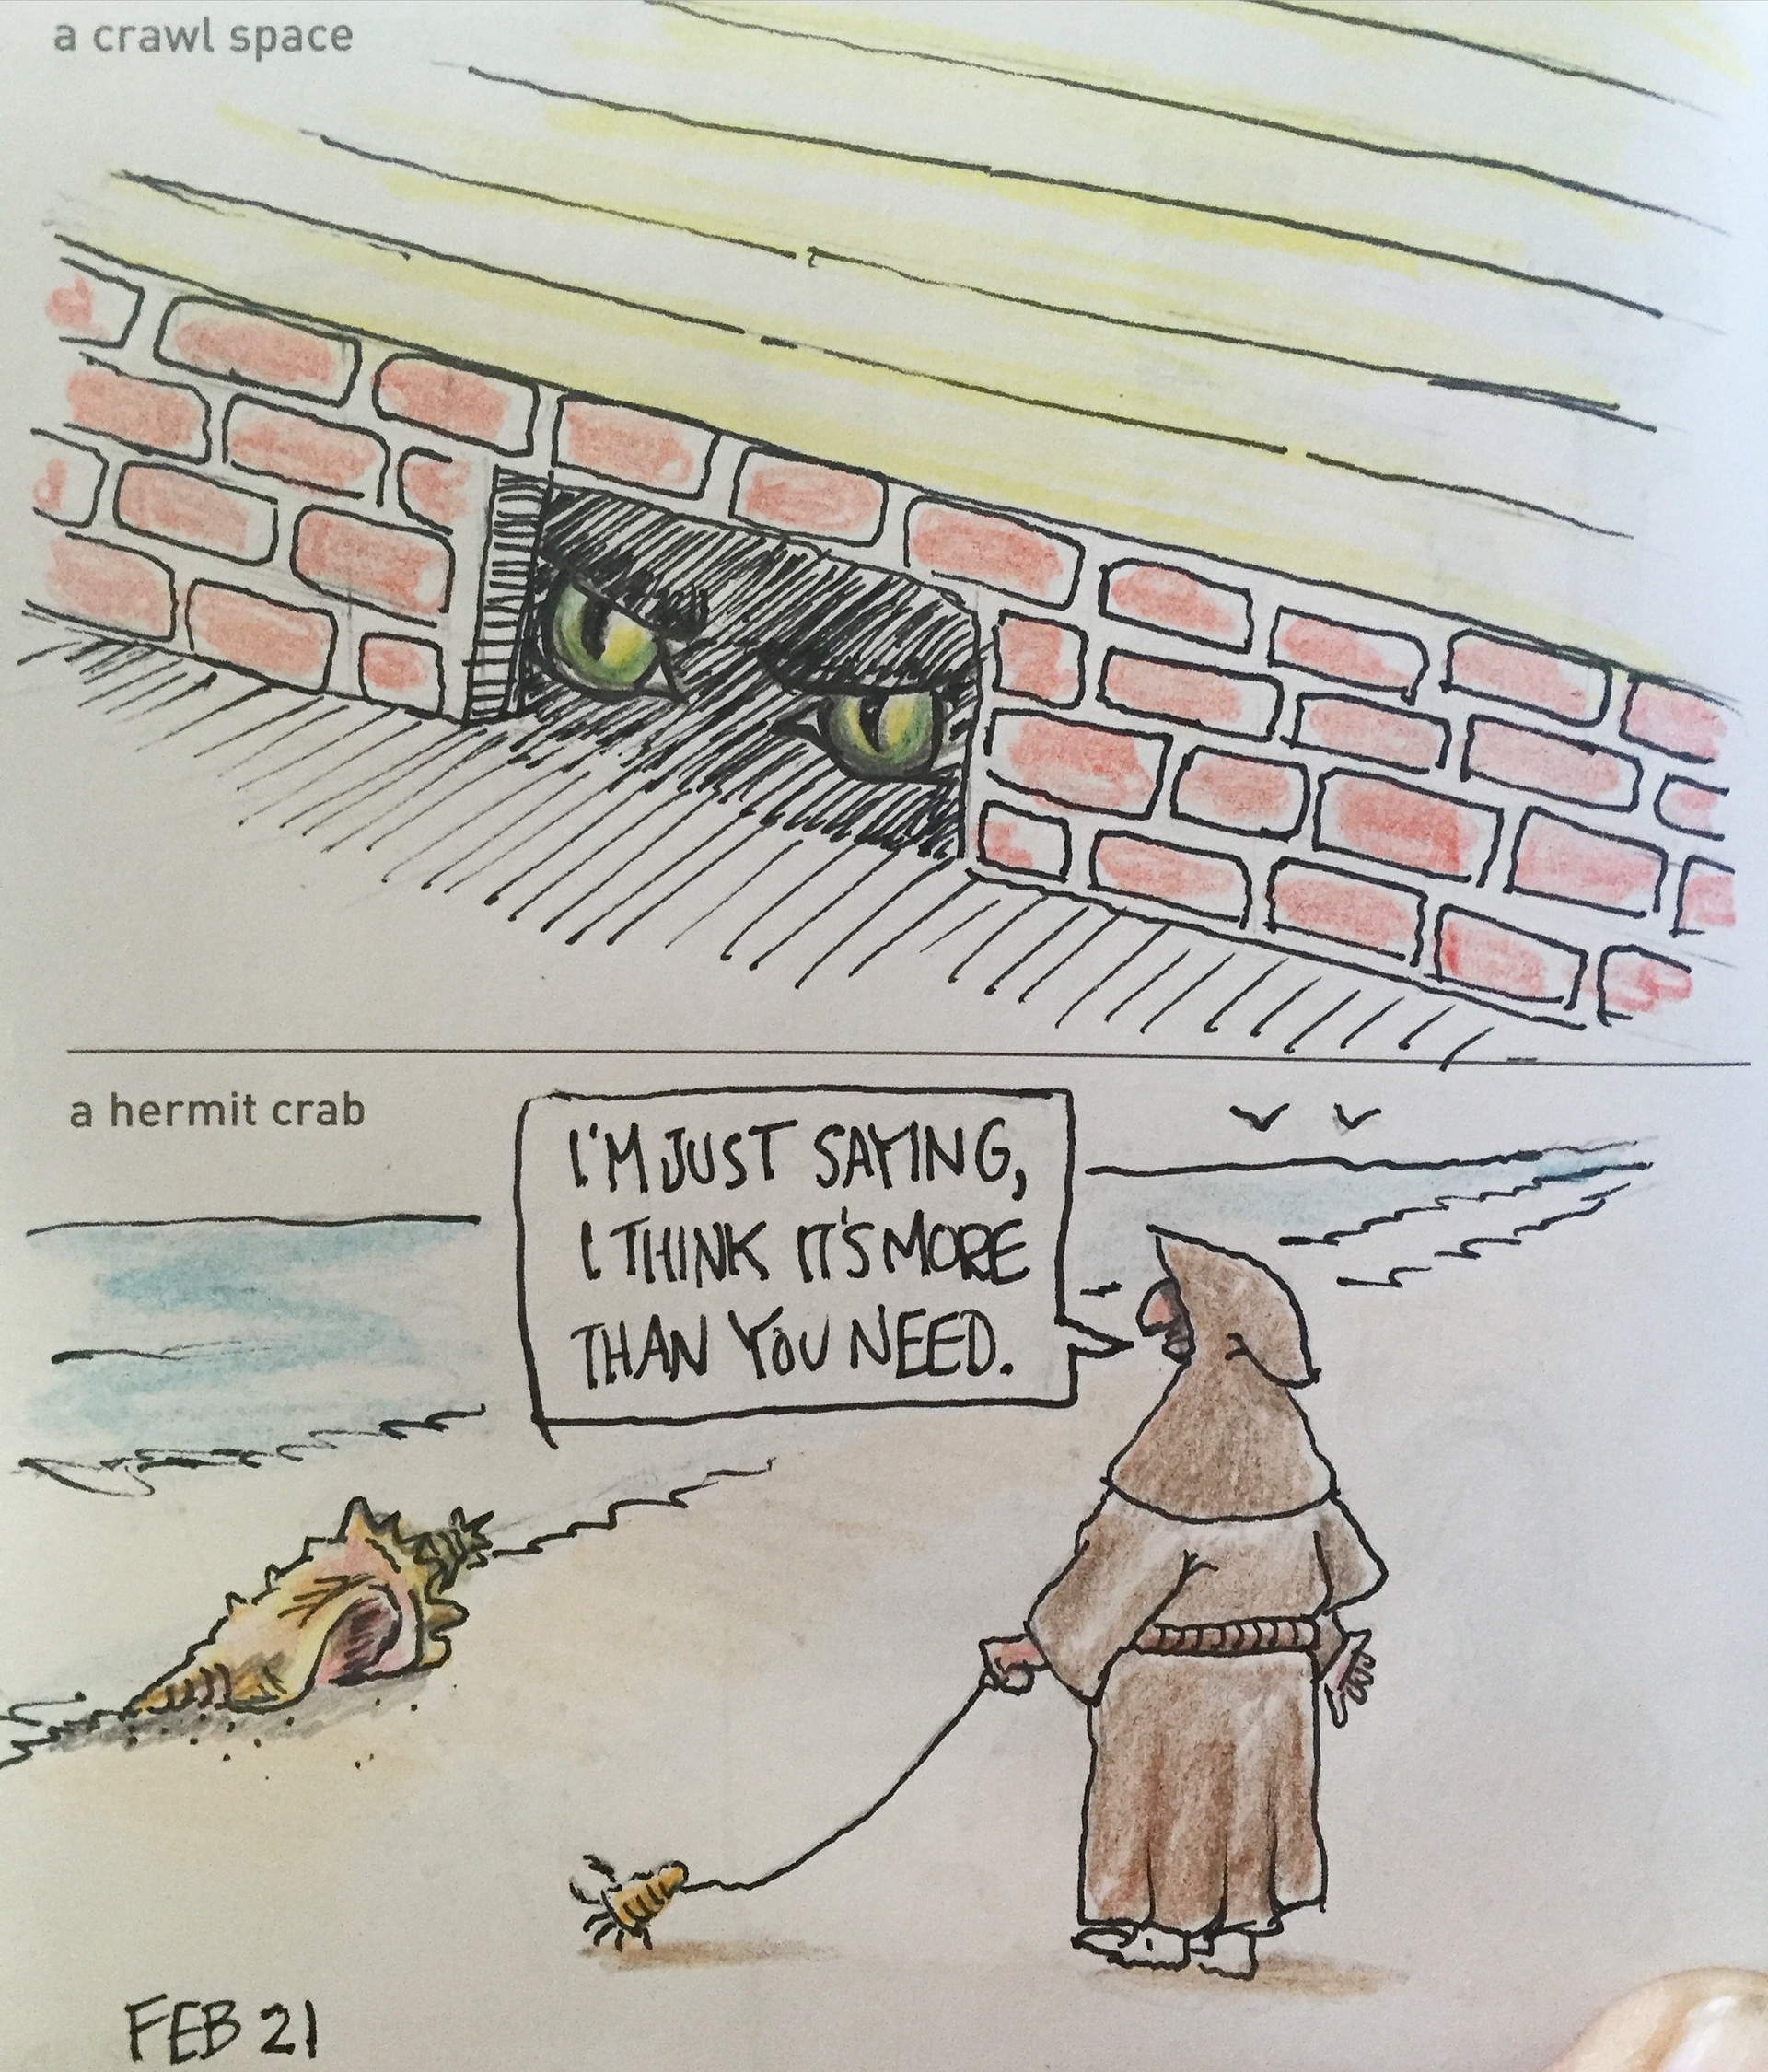 a crawl space
a hermit crab
I'M JUST SAYING,
I THINK IT'S MORE
THAN YOU NEED.
FEB 21